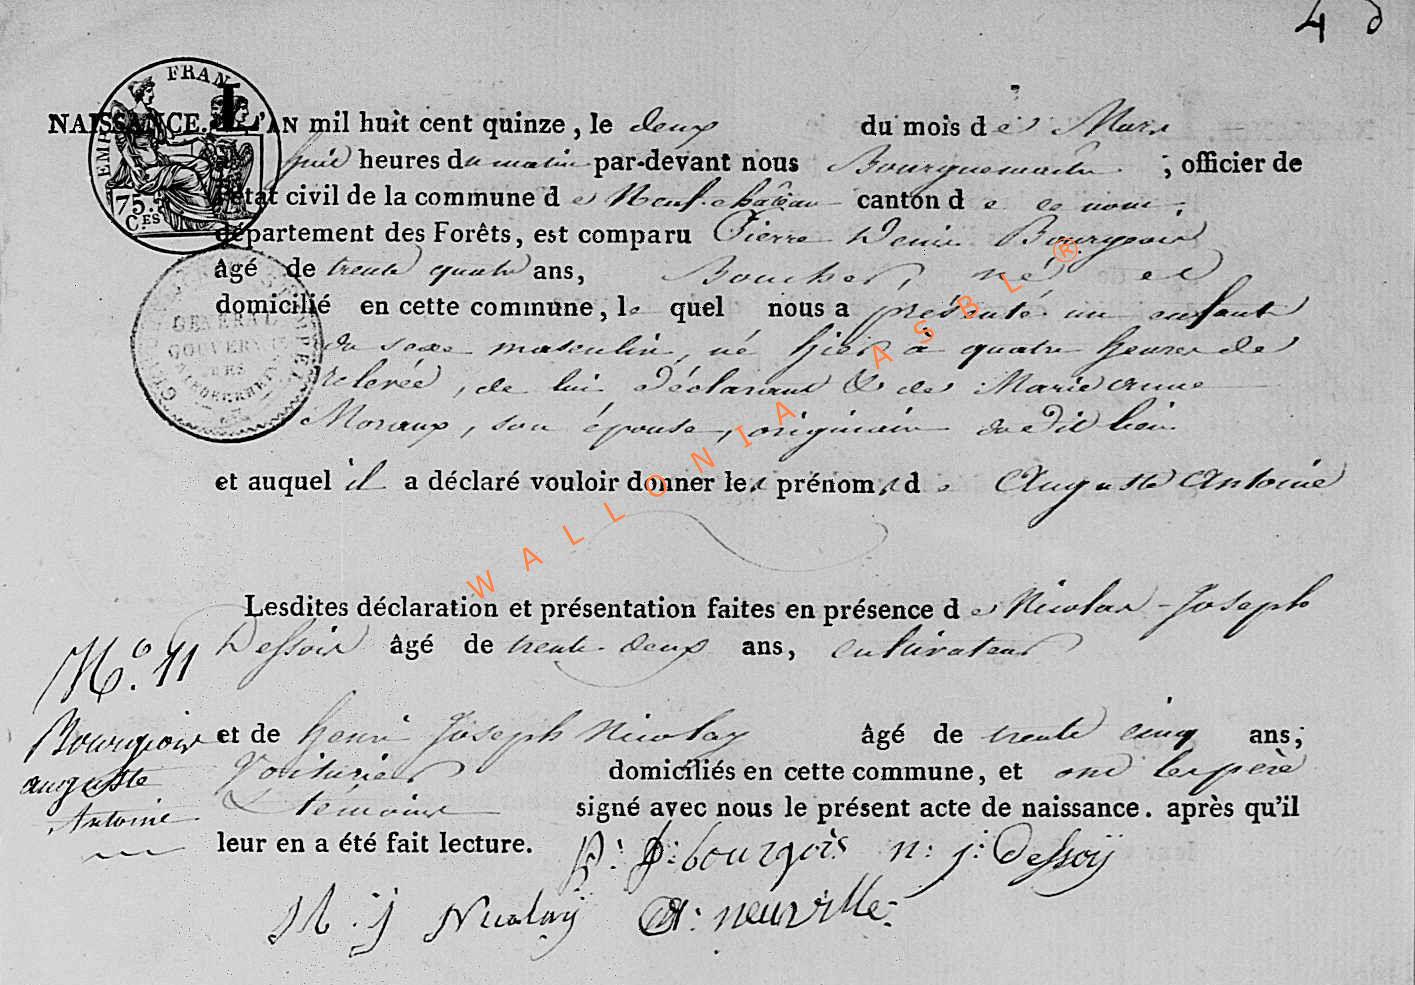 4
FRAN
EMP
75.
C.ES
GENERAL
GOUVERN
NAISSANCE. L'AN mil huit cent quinze, le deux du mois de Mars
huit heures du matin par-devant nous Bourguemaitre ; officier de
l'état civil de la commune de Neufchâteau canton de ce nom,
département des Forêts, est comparu Pierre Denis Bourgeois
âgé de trente quatre ans, Boucher, né et
domicilié en cette commune, le quel nous a présenté un enfant
du sexe masculin, né hier à quatre heures de
relevée, de lui déclarant & de Marie anne
Moraux, son épouse, originaire dudit lieu
et auquel il a déclaré vouloir donner les prénoms de Auguste Antoine
Lesdites déclaration et présentation faites en présence de Nicolas-Joseph
Dessois âgé de trente-deux ans, cultivateur
N.o 11
Bourgeois
auguste
Antoine
et de henri Joseph Nicolay âgé de trente cinq ans,
Voiturier domiciliés en cette commune, et ont les père
& témoins signé avec nous le présent acte de naissance. après qu'il
leur en a été fait lecture.
P: D: bourgois n: j: Dessoij
H. j Nicolaij A: neuville
WALLONIA ASBL ®